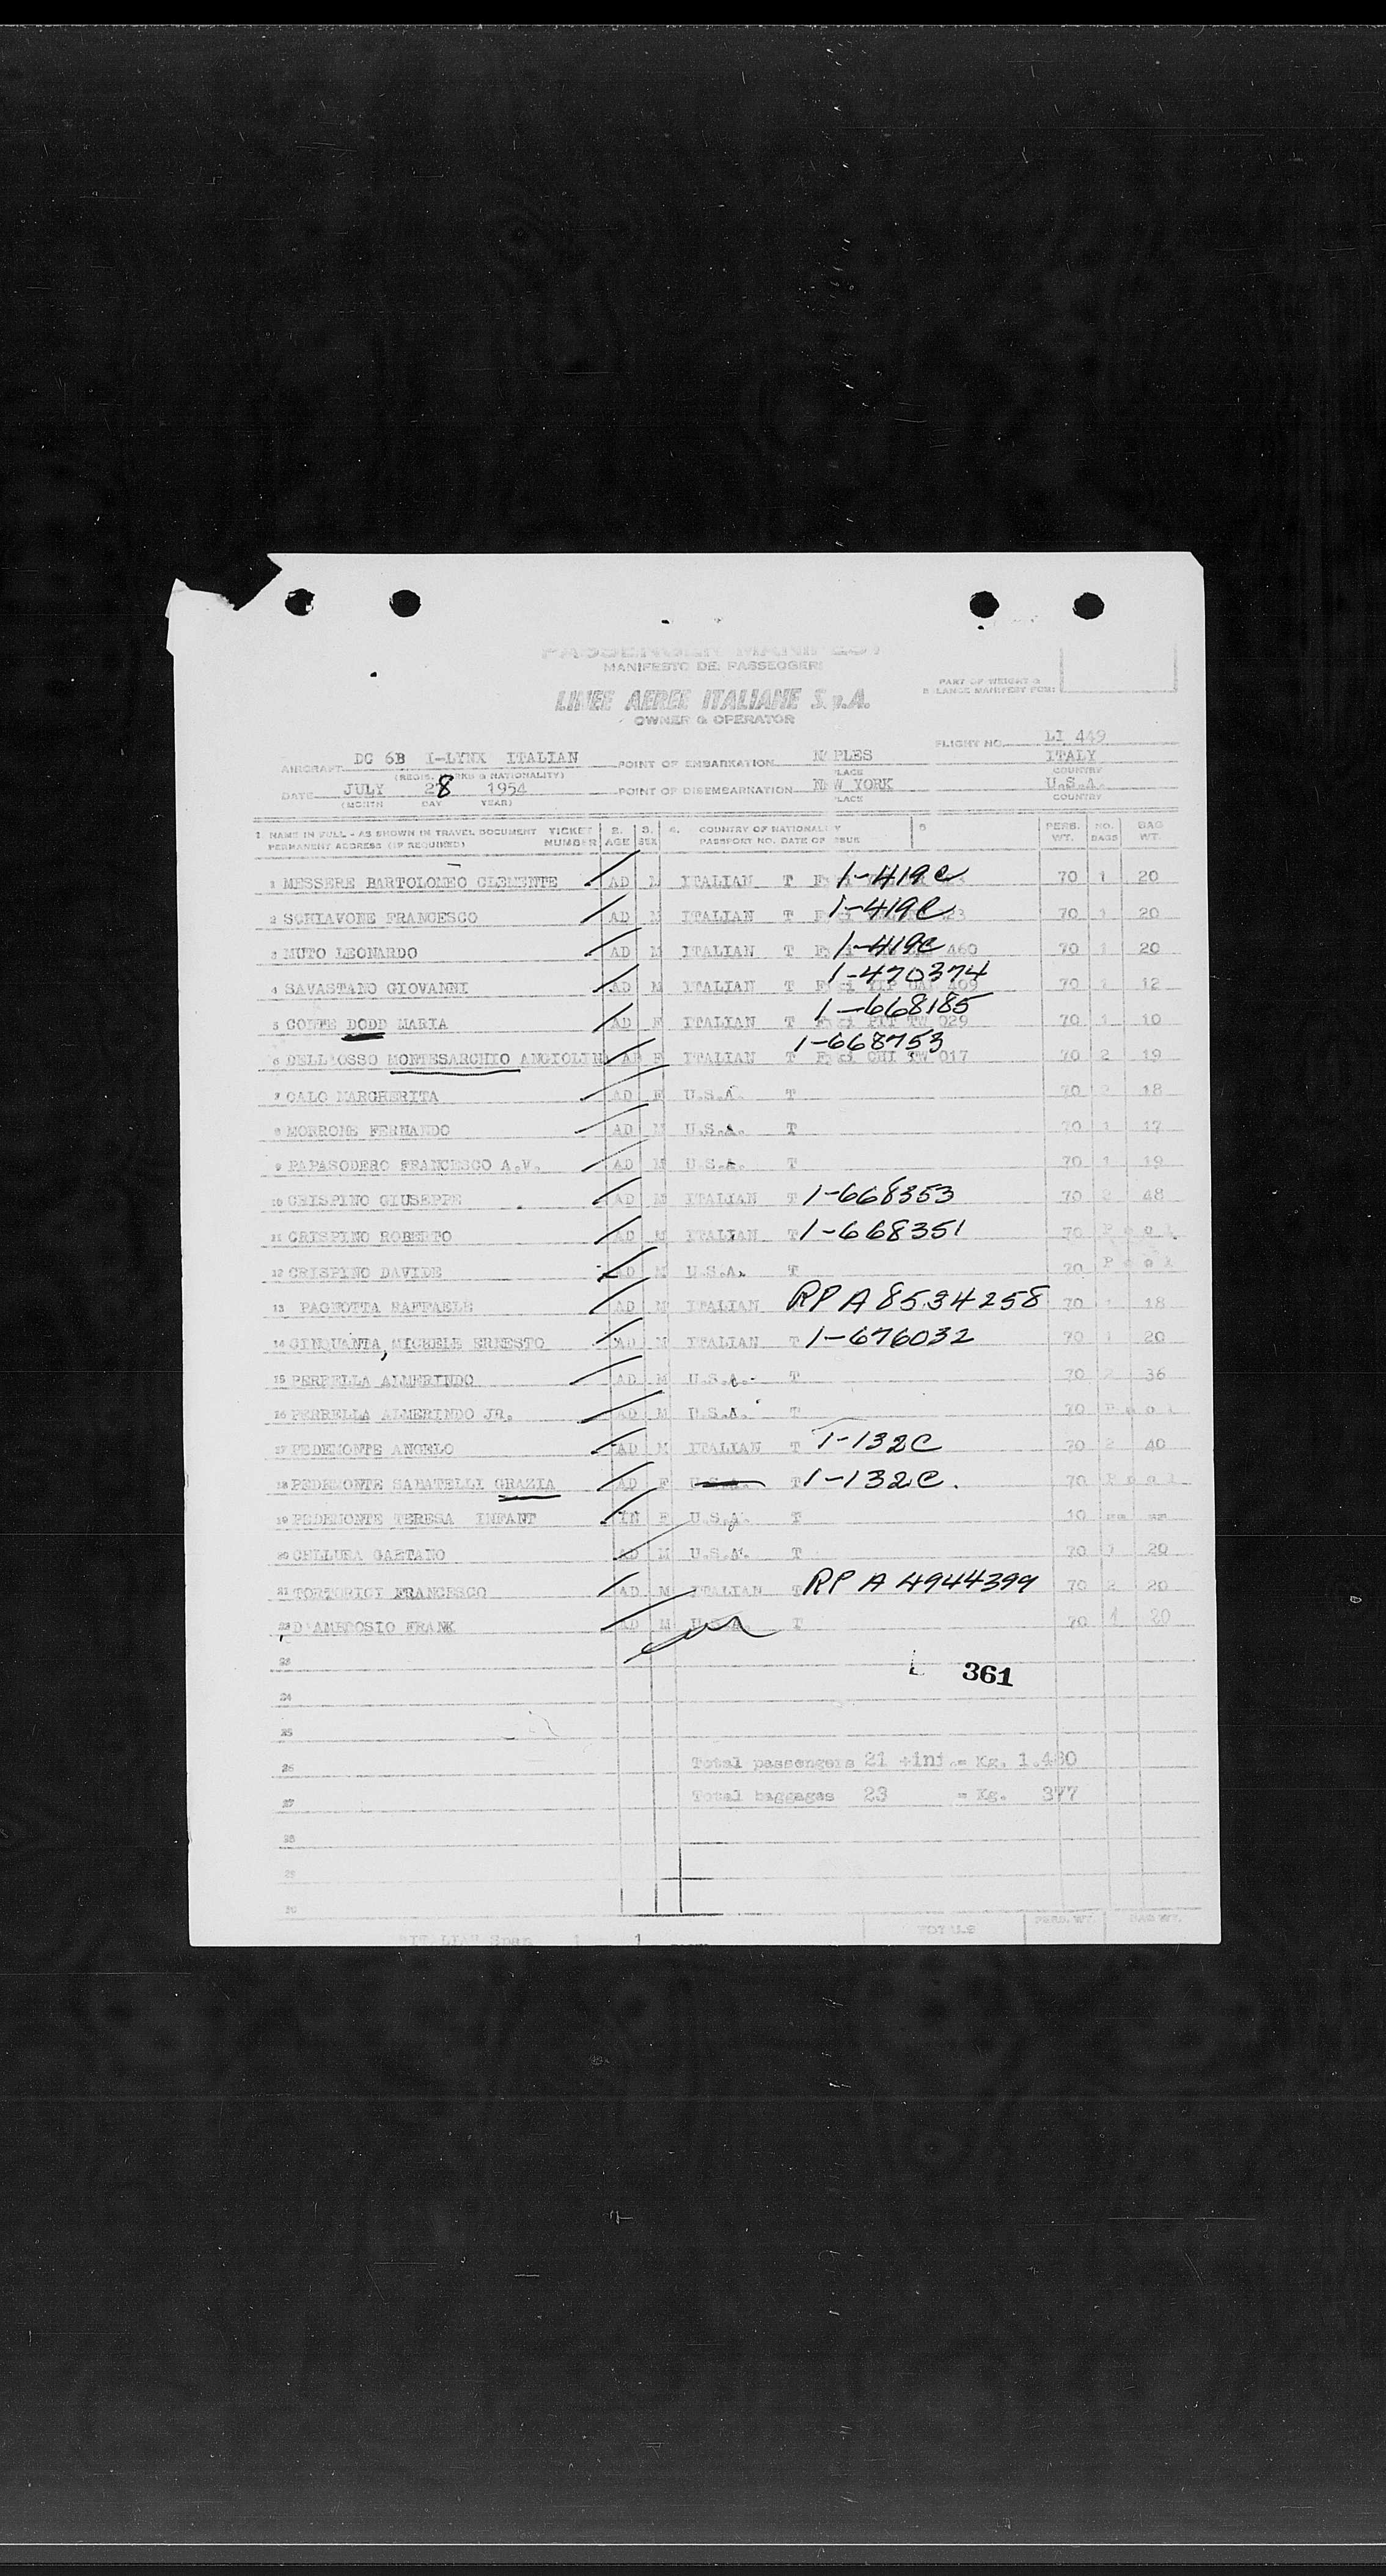 PASSENGER MANIFEST
MANIFESTO DEI PASSEGGERI
LINEE AEREE ITALIANE S.p.A.
OWNER & OPERATOR
PART OF WEIGHT &
BALANCE MANIFEST FOR:
FLIGHT NO. LI 449
AIRCRAFT DC 6B I-LYNX ITALIAN POINT OF EMBARKATION NAPLES ITALY
(REGIS. MARKS & NATIONALITY) PLACE COUNTRY
DATE JULY 28 1954 POINT OF DISEMBARKATION NEW YORK U.S.A.
(MONTH DAY YEAR) PLACE COUNTRY
1. NAME IN FULL - AS SHOWN IN TRAVEL DOCUMENT TICKET 2. 3. 4. COUNTRY OF NATIONALITY 5 PERS. NO. BAG
PERMANENT ADDRESS (IF REQUIRED) NUMBER AGE SEX PASSPORT NO. DATE OF ISSUE WT. BAGS WT.
1 MESSERE BARTOLOMEO CLEMENTE AD M ITALIAN T 1-419C 70 1 20
2 SCHIAVONE FRANCESCO AD M ITALIAN T 1-419C 70 1 20
3 MUTO LEONARDO AD M ITALIAN T 1-419C 460 70 1 20
4 SAVASTANO GIOVANNI AD M ITALIAN T 1-470374 409 70 12
5 CONTE DODD MARIA AD F ITALIAN T 1-668185 029 70 1 10
6 DELL'OSSO MONTESARCHIO ANGIOLIN AD F ITALIAN T 1-668753 017 70 2 19
7 CALO MARGHERITA AD F U.S.A. T 70 2 18
8 MORRONE FERNANDO AD M U.S.A. T 70 1 17
9 PAPASODERO FRANCESCO A.V. AD M U.S.A. T 70 1 19
10 CRISPINO GIUSEPPE AD M ITALIAN T 1-668353 70 2 48
11 CRISPINO ROBERTO AD M ITALIAN T 1-668351 70 Pool
12 CRISPINO DAVIDE AD M U.S.A. T 70 Pool
13 PAGNOTTA RAFFAELE AD M ITALIAN RP A 8534258 70 1 18
14 CINQUANTA, MICHELE ERNESTO AD M ITALIAN T 1-676032 70 1 20
15 PERRELLA ALMERINDO AD M U.S.A. T 70 2 36
16 PERRELLA ALMERINDO JR. AD M U.S.A. T 70 Pool
17 PEDEMONTE ANGELO AD M ITALIAN T 1-132C 70 2 40
18 PEDEMONTE SABATELLI GRAZIA AD F U.S.A. T 1-132C. 70 Pool
19 PEDEMONTE TERESA INFANT IN F U.S.A. T 10 -- --
20 CELLURA GAETANO AD M U.S.A. T 70 1 20
21 TORTORICI FRANCESCO AD M ITALIAN T RP A 4944399 70 2 20
22 D'AMBROSIO FRANK AD M U.S.A. T 70 1 20
23
361
24
25
26 Total passengers 21 +inf.= Kg. 1.480
27 Total baggages 23 = Kg. 377
28
29
30
TOTALS PERS. WT. BAG WT.